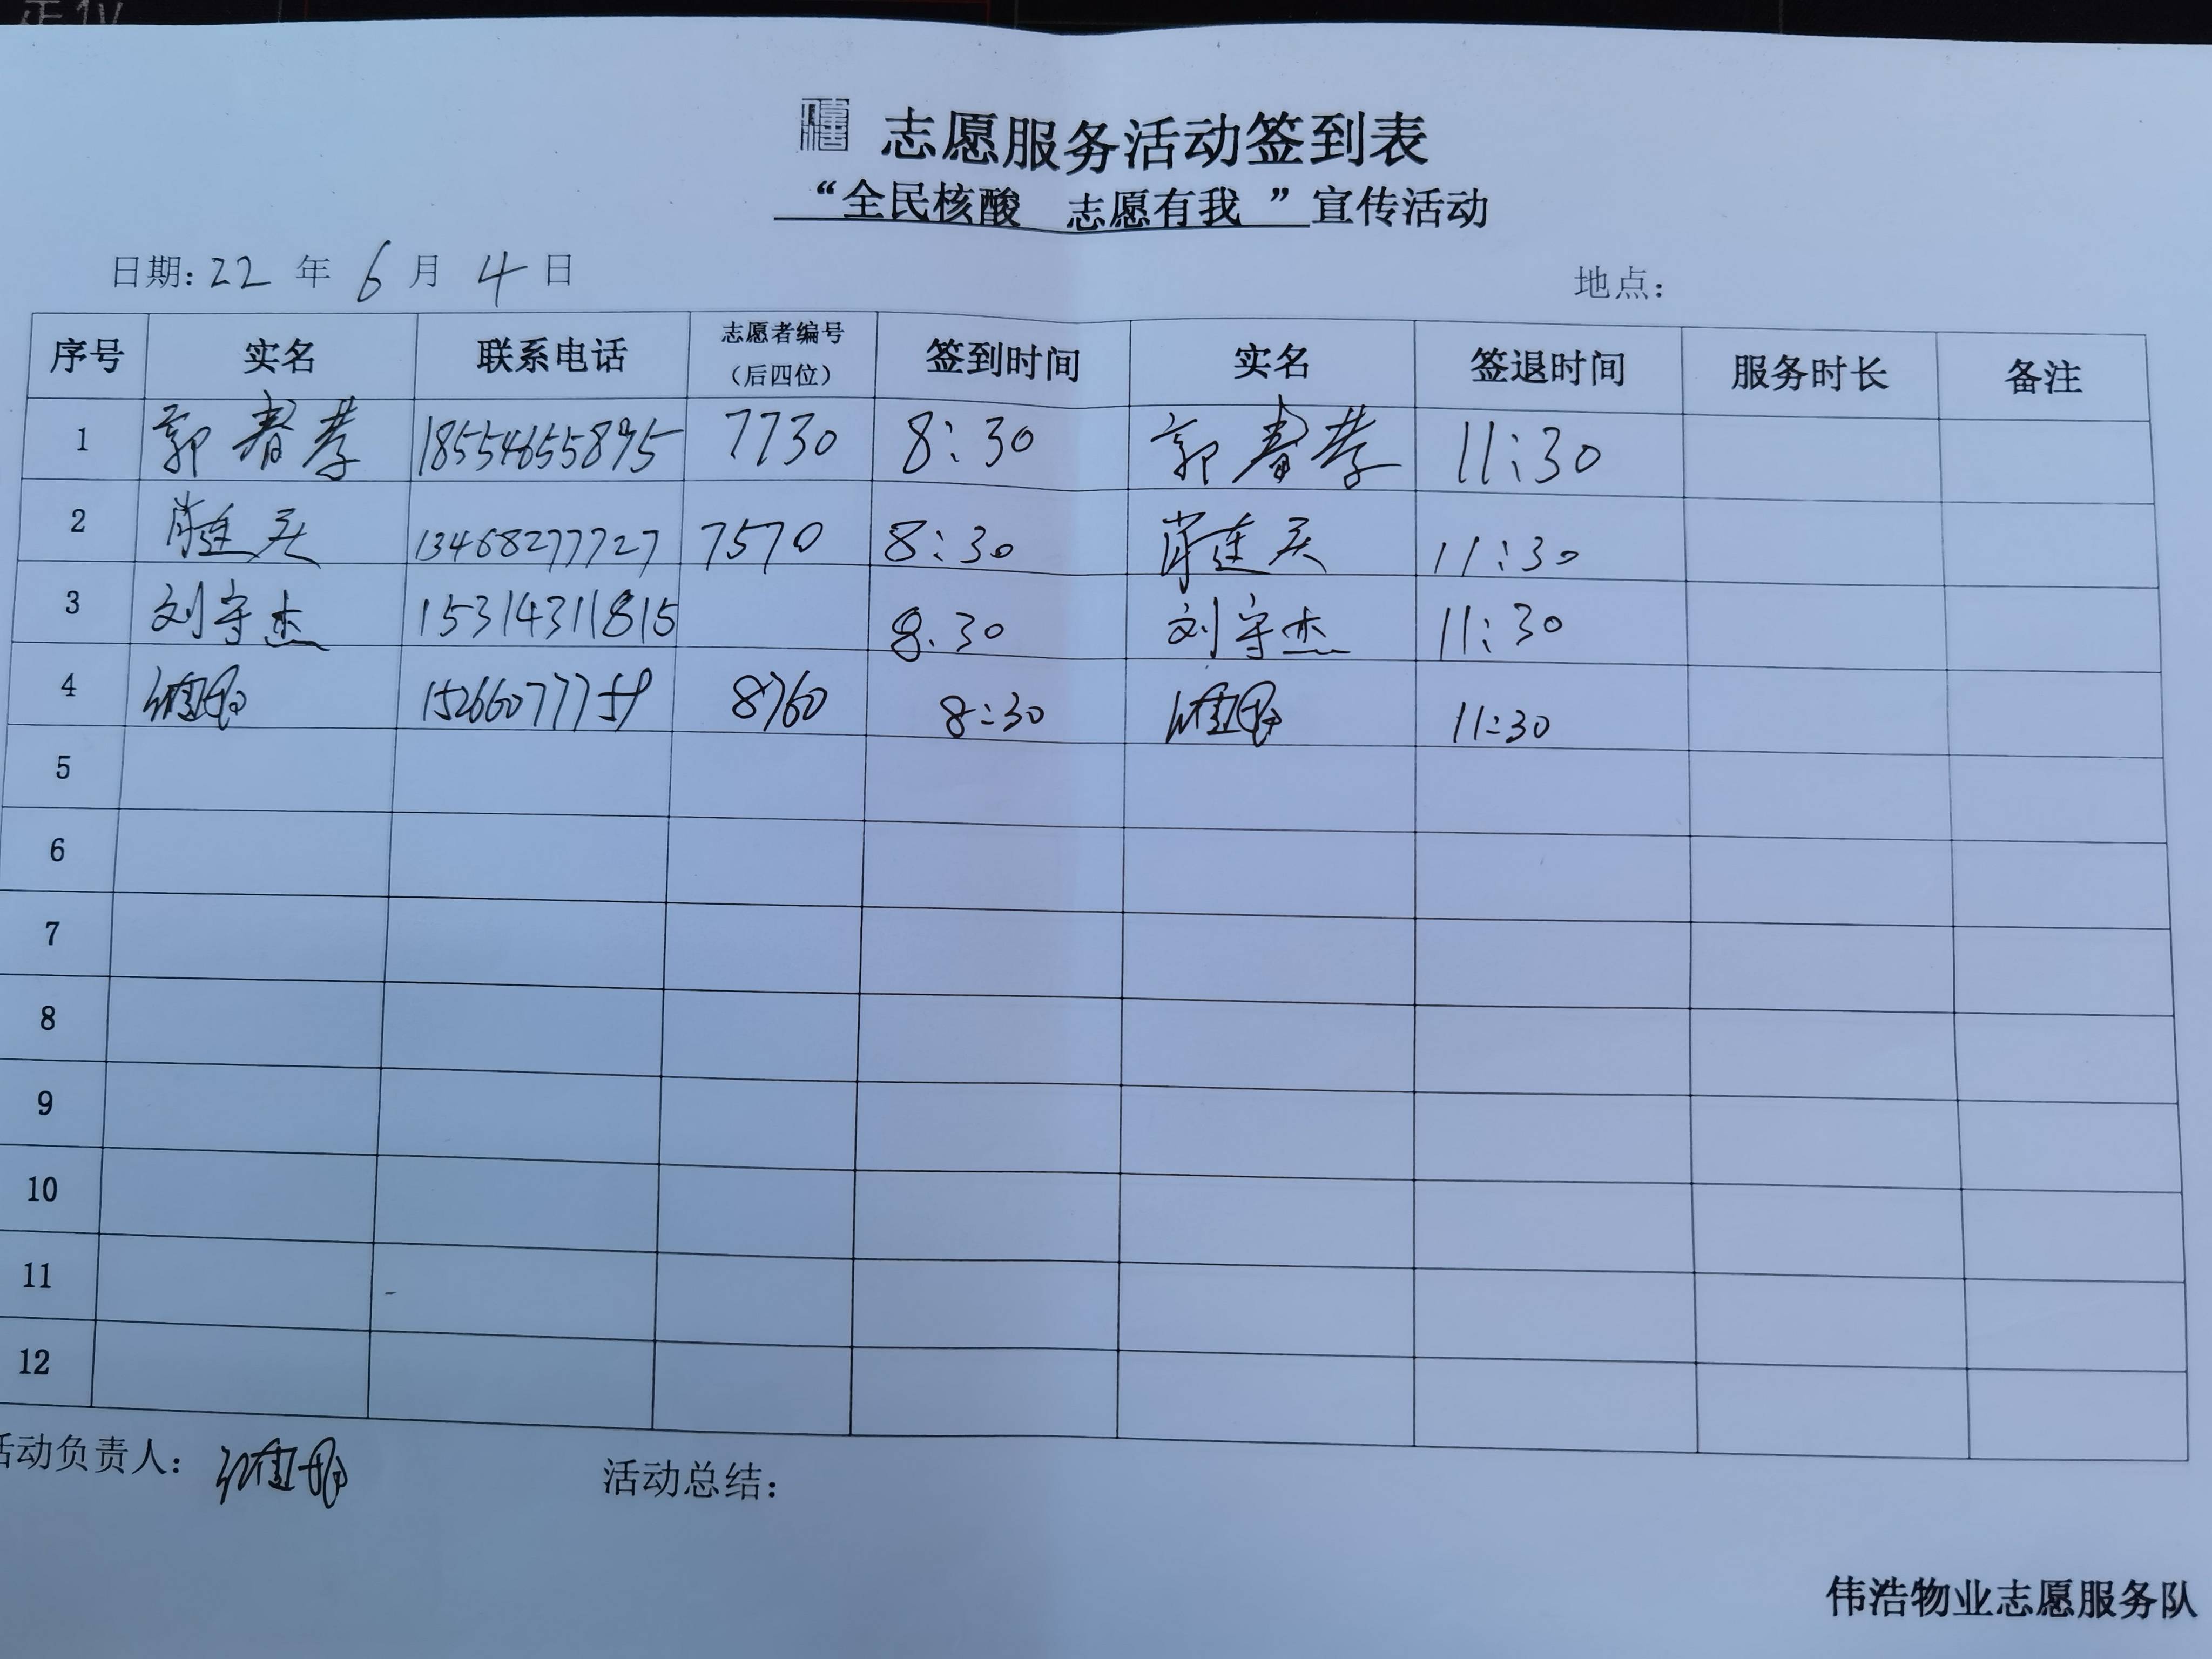 志愿服务活动签到表
“全民核酸 志愿有我 ”宣传活动
日期: 22 年 6 月 4 日 地点:
序号 实名 联系电话 志愿者编号（后四位） 签到时间 实名 签退时间 服务时长 备注
1 郭春孝 18554655895 7730 8:30 郭春孝 11:30
2 13468277727 7570 8:30 11:30
3 刘守杰 15314311815 8.30 刘守杰 11:30
4 8760 8:30 11:30
5
6
7
8
9
10
11
12
活动负责人: 活动总结:
伟浩物业志愿服务队